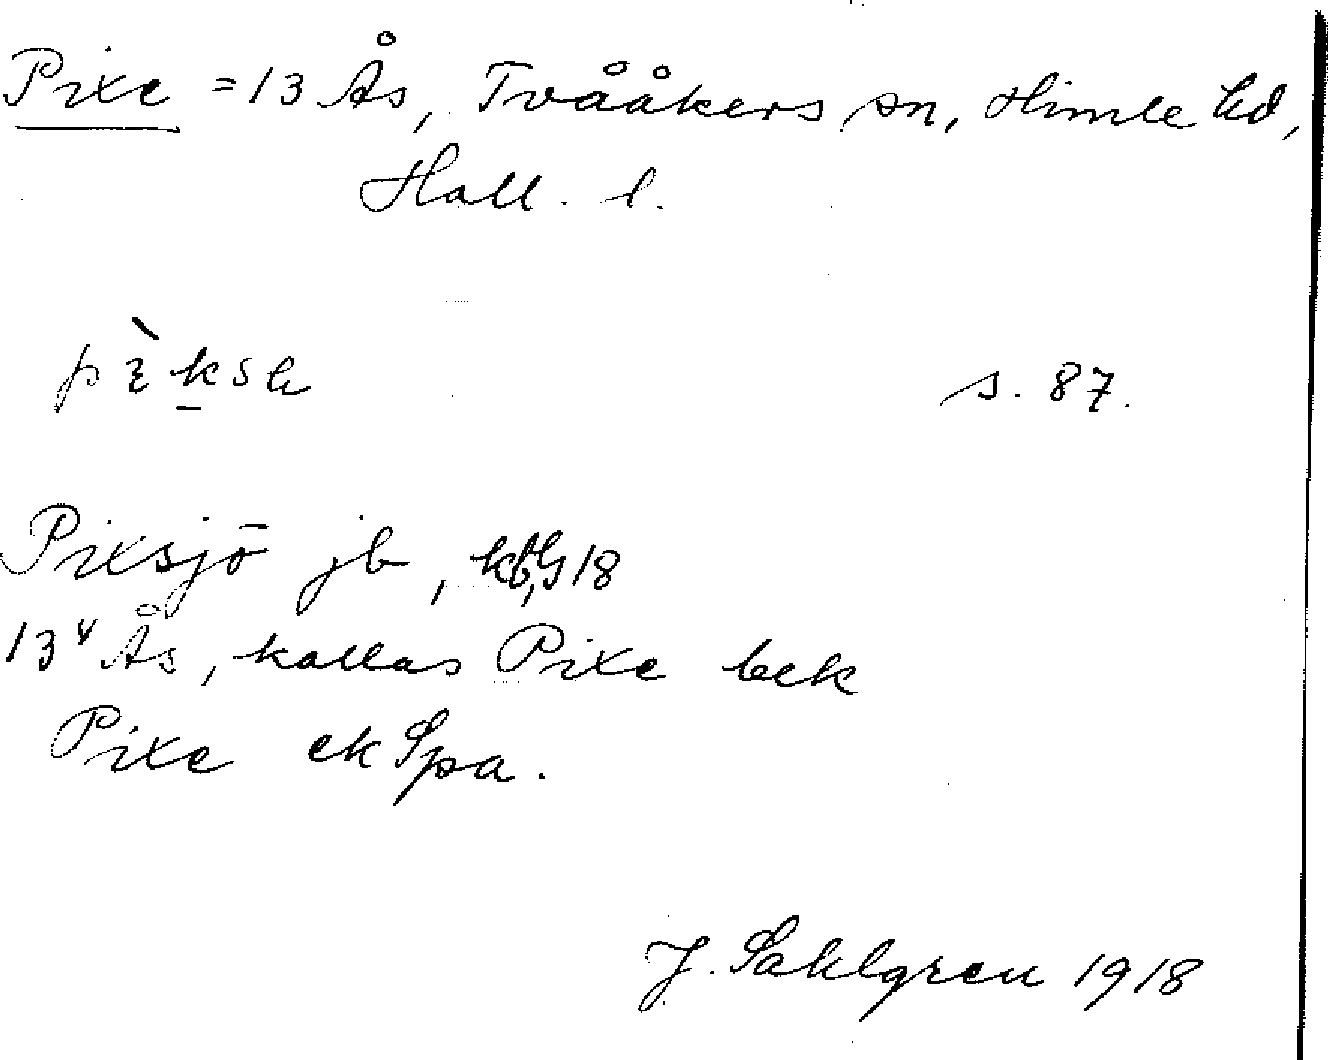 Pixe = 13 Ås, Tvååkers sn, Himle hd,
Hall. l.
s. 87.
Pixsjö jb, kbG18
13 Ås, kallas Pixe bek
Pixe ek Spa.
J. Sahlgren 1918